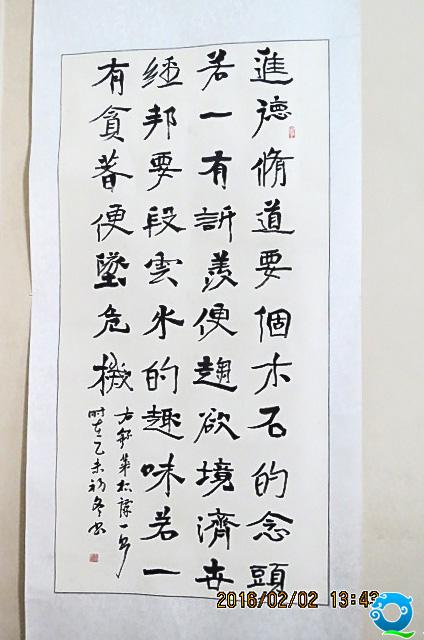 進德脩道要個木石的念頭
若一有訢羨便趨欲境濟世
經邦要段雲水的趣味若一
有貪著便墜危機
一多
時在乙未初冬書
2016/02/02 13:43